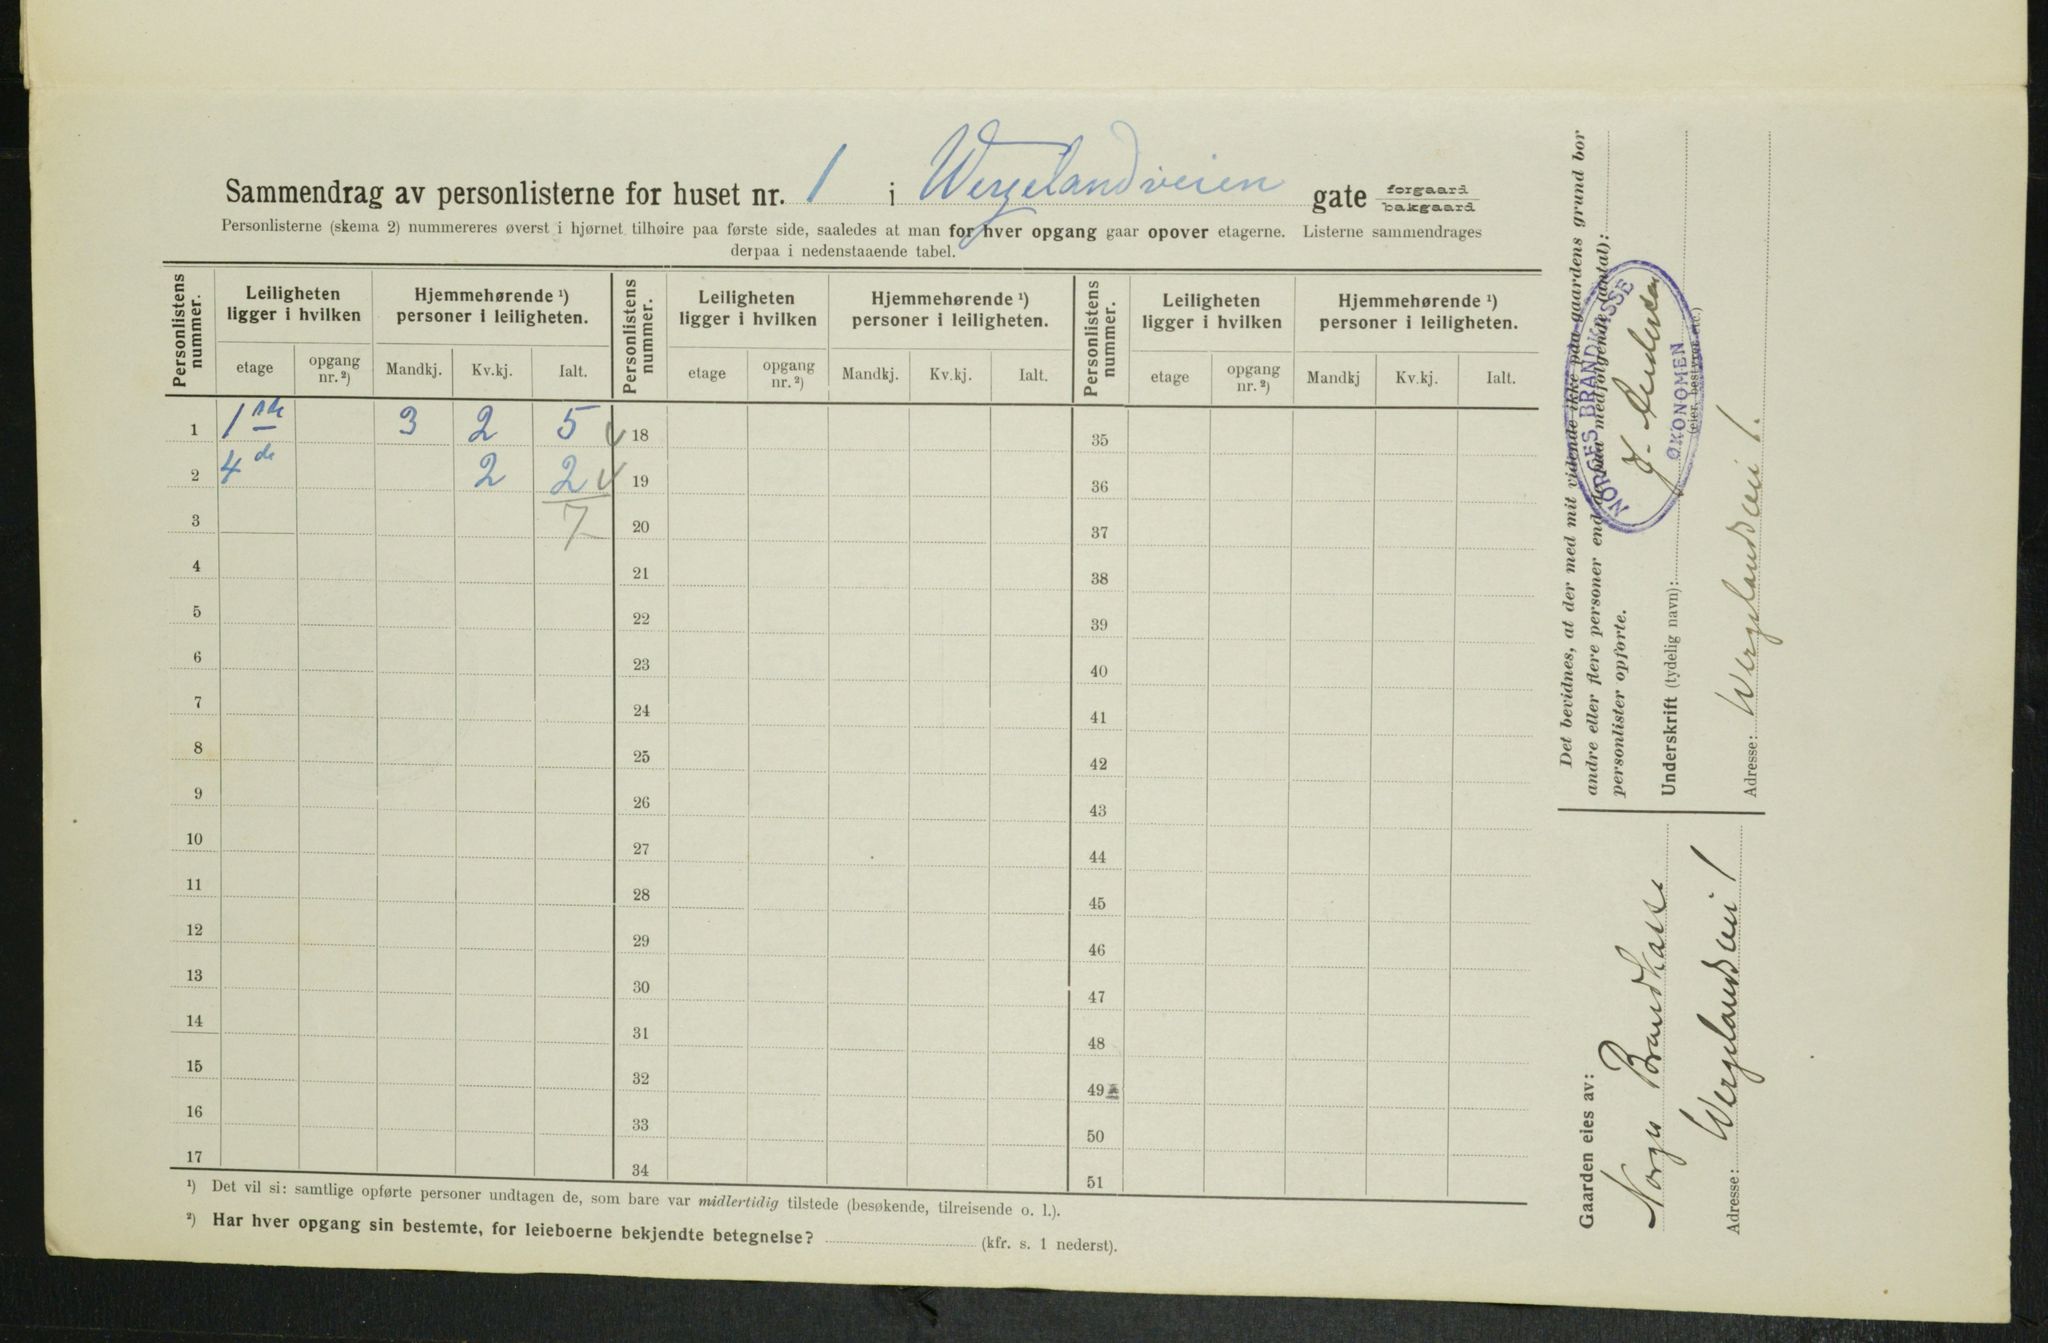 Sammendrag av personlisterne for huset nr. 1 i Wergelandveien gate forgaard bakgaard
Personlisterne (skema 2) nummereres øverst i hjørnet tilhøire paa første side, saaledes at man for hver opgang gaar opover etagerne. Listerne sammendrages
derpaa i nedenstaaende tabel.
Personlistens nummer. Leiligheten ligger i hvilken Hjemmehørende ¹) personer i leiligheten. Personlistens nummer. Leiligheten ligger i hvilken Hjemmehørende ¹) personer i leiligheten. Personlistens nummer. Leiligheten ligger i hvilken Hjemmehørende ¹) personer i leiligheten.
etage opgang nr. ²) Mandkj. Kv.kj. Ialt. etage opgang nr. ²) Mandkj. Kv.kj. Ialt. etage opgang nr. ²) Mandkj Kv.kj. Ialt.
1 1ste 3 2 5 18 35
2 4de 2 2 19 36
3 7 20 37
4 21 38
5 22 39
6 23 40
7 24 41
8 25 42
9 26 43
10 27 44
11 28 45
12 29 46
13 30 47
14 31 48
15 32 49
16 33 50
17 34 51
¹) Det vil si: samtlige opførte personer undtagen de, som bare var midlertidig tilstede (besøkende, tilreisende o. l.).
²) Har hver opgang sin bestemte, for leieboerne bekjendte betegnelse? (kfr. s. 1 nederst).
Det bevidnes, at der med mit vidende ikke paa gaardens grund bor
andre eller flere personer end de paa medfølgende (antal):
personlister opførte.
Underskrift (tydelig navn):
(eier, bestyrer etc.)
NORGES BRANDKASSE
ØKONOMEN
Adresse: Wergelandsvei 1.
Gaarden eies av:
Norges Brandkasse
Adresse: Wergelandsvei 1